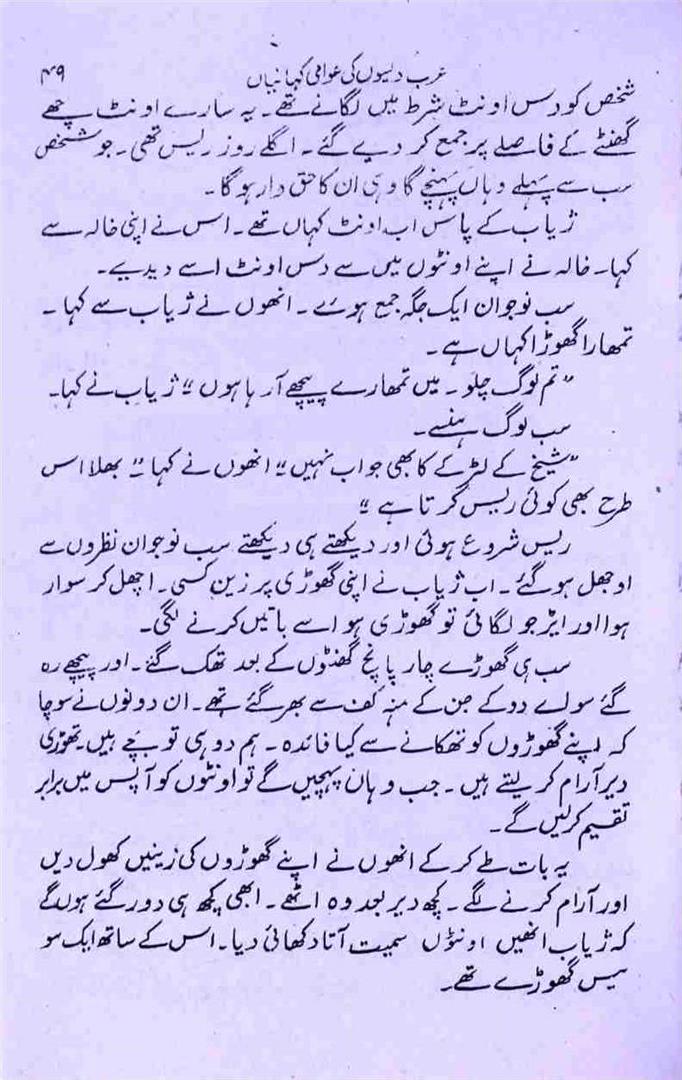 عرب دیسوں کی عوامی کہانیاں ۴۹
شخص کو دس اونٹ شرط میں لگانے تھے۔ یہ سارے اونٹ چھے
گھنٹے کے فاصلے پر جمع کر دیے گئے۔ اگلے روز ریس تھی۔ جو شخص
سب سے پہلے وہاں پہنچے گا وہی ان کا حق دار ہوگا۔
ژیاب کے پاس اب اونٹ کہاں تھے۔ اس نے اپنی خالہ سے
کہا۔ خالہ نے اپنے اونٹوں میں سے دس اونٹ اسے دیدیے۔
سب نوجوان ایک جگہ جمع ہوئے۔ انھوں نے ژیاب سے کہا۔
تمھارا گھوڑا کہاں ہے۔
”تم لوگ چلو۔ میں تمھارے پیچھے آ رہا ہوں“ ژیاب نے کہا۔
سب لوگ ہنسے۔
”شیخ کے لڑکے کا بھی جواب نہیں“ انھوں نے کہا ”بھلا اس
طرح بھی کوئی ریس کرتا ہے“
ریس شروع ہوئی اور دیکھتے ہی دیکھتے سب نوجوان نظروں سے
اوجھل ہو گئے۔ اب ژیاب نے اپنی گھوڑی پر زین کسی۔ اچھل کر سوار
ہوا اور ایڑ جو لگائی تو گھوڑی ہوا سے باتیں کرنے لگی۔
سب ہی گھوڑے چار پانچ گھنٹوں کے بعد تھک گئے۔ اور پیچھے رہ
گئے سوائے دو کے جن کے منہ کف سے بھر گئے تھے۔ ان دونوں نے سوچا
کہ اپنے گھوڑوں کو تھکانے سے کیا فائدہ۔ ہم دو ہی تو بچے ہیں۔ تھوڑی
دیر آرام کر لیتے ہیں۔ جب وہان پہچیں گے تو اونٹوں کو آپس میں برابر
تقسیم کرلیں گے۔
یہ بات طے کر کے انھوں نے اپنے گھوڑوں کی زینیں کھول دیں
اور آرام کرنے لگے۔ کچھ دیر بعد وہ اٹھے۔ ابھی کچھ ہی دور گئے ہوں گے
کہ ژیاب انھیں اونٹوں سمیت آتا دکھائی دیا۔ اس کے ساتھ ایک سو
بیس گھوڑے تھے۔